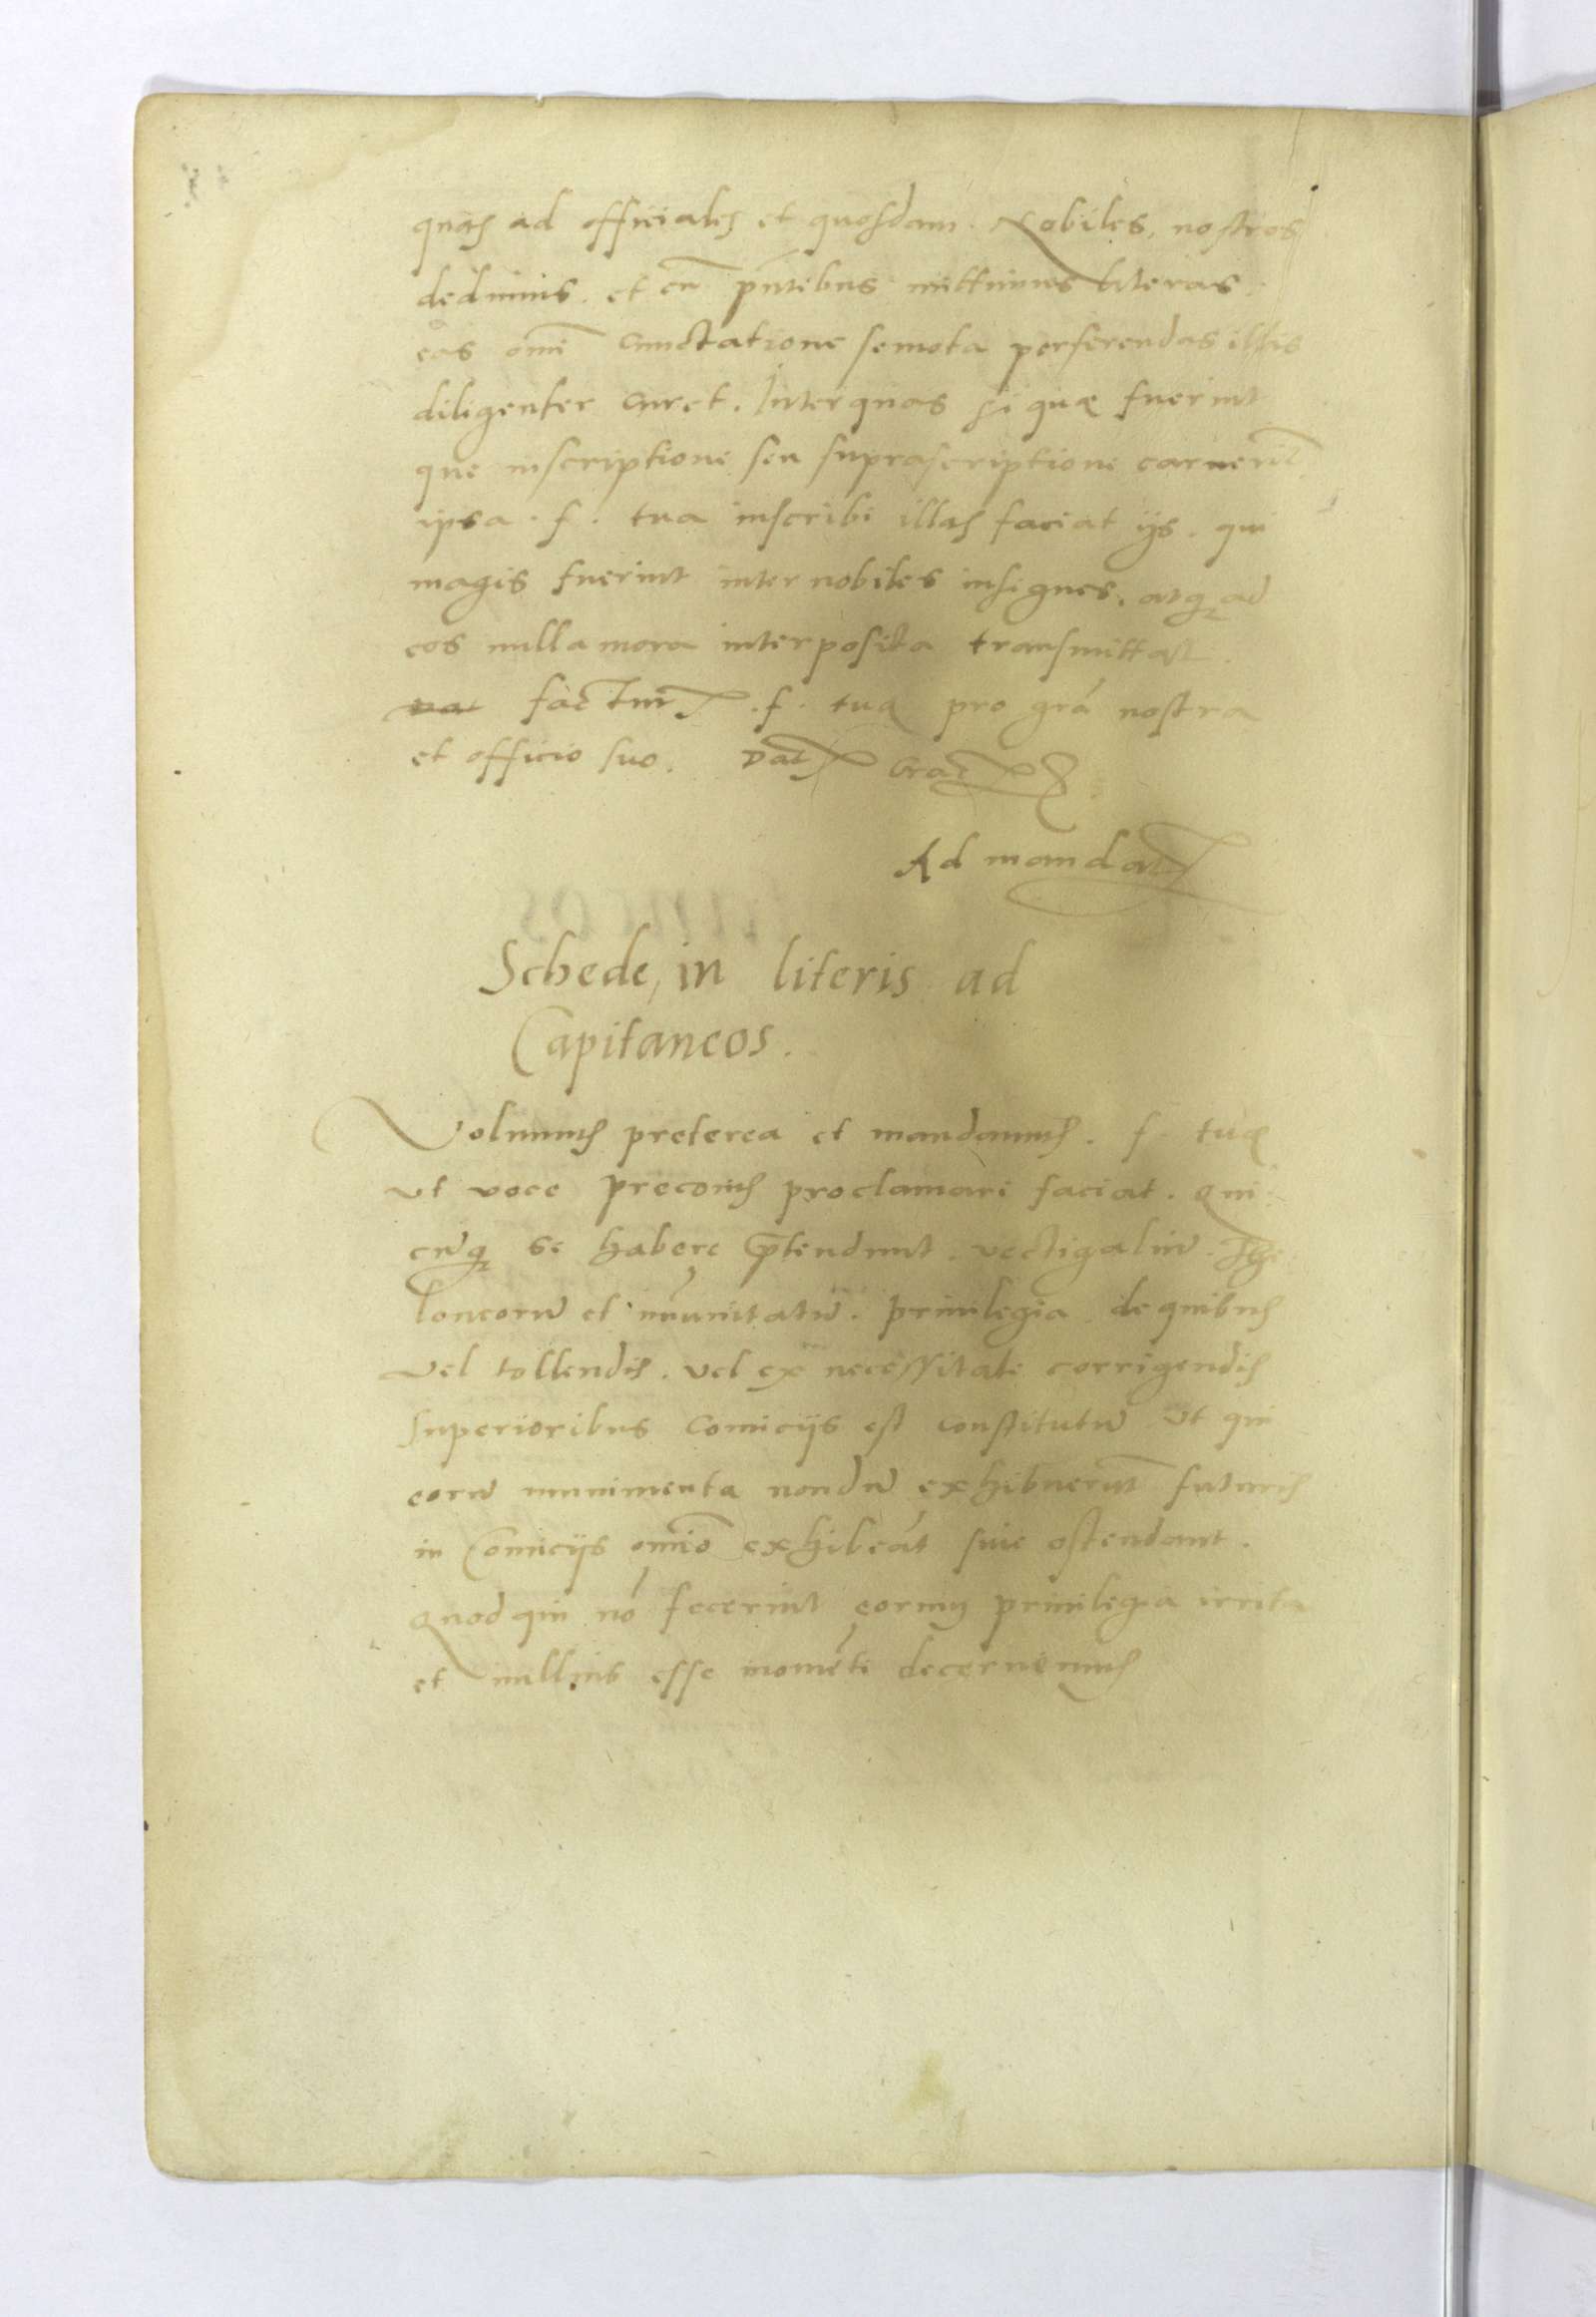 quas ad officiales et quosdam. Nobiles, nostros
dedimus. et cū pn̄tibus mittimus literas.
eas om̄i cunctatione semota perferendas illis
diligenter curet. Inter quas si quæ fuerint
que inscriptione seu suprascriptione caruerīt
ipsa. f. tua inscribi illas faciat ijs. qui
magis fuerint inter nobiles insignes. atqȝ ad
eos nulla mora interposita transmittat.
factur. f. tua pro grā nostra
et officio suo. Dat Crac
Ad mandat
Schede, in literis ad
Capitaneos.
Volumus preterea et mandamus. f. tuæ
ut voce preconis proclamari faciat. Qui
cūqȝ se habere p̄tendunt. vectigaliū. The
loneorū et īmunitatū. privilegia. de quibus
vel tollendis. vel ex necessitate corrigendis
superioribus Comicijs est constitutū ut qui
eorū munimenta nondū exhibuerūt futuris
in Comicijs om̄io exhibeāt suie ostendant.
Quod qui nō fecerint eorum privilegia irrita
et nullius esse momēti decernemus